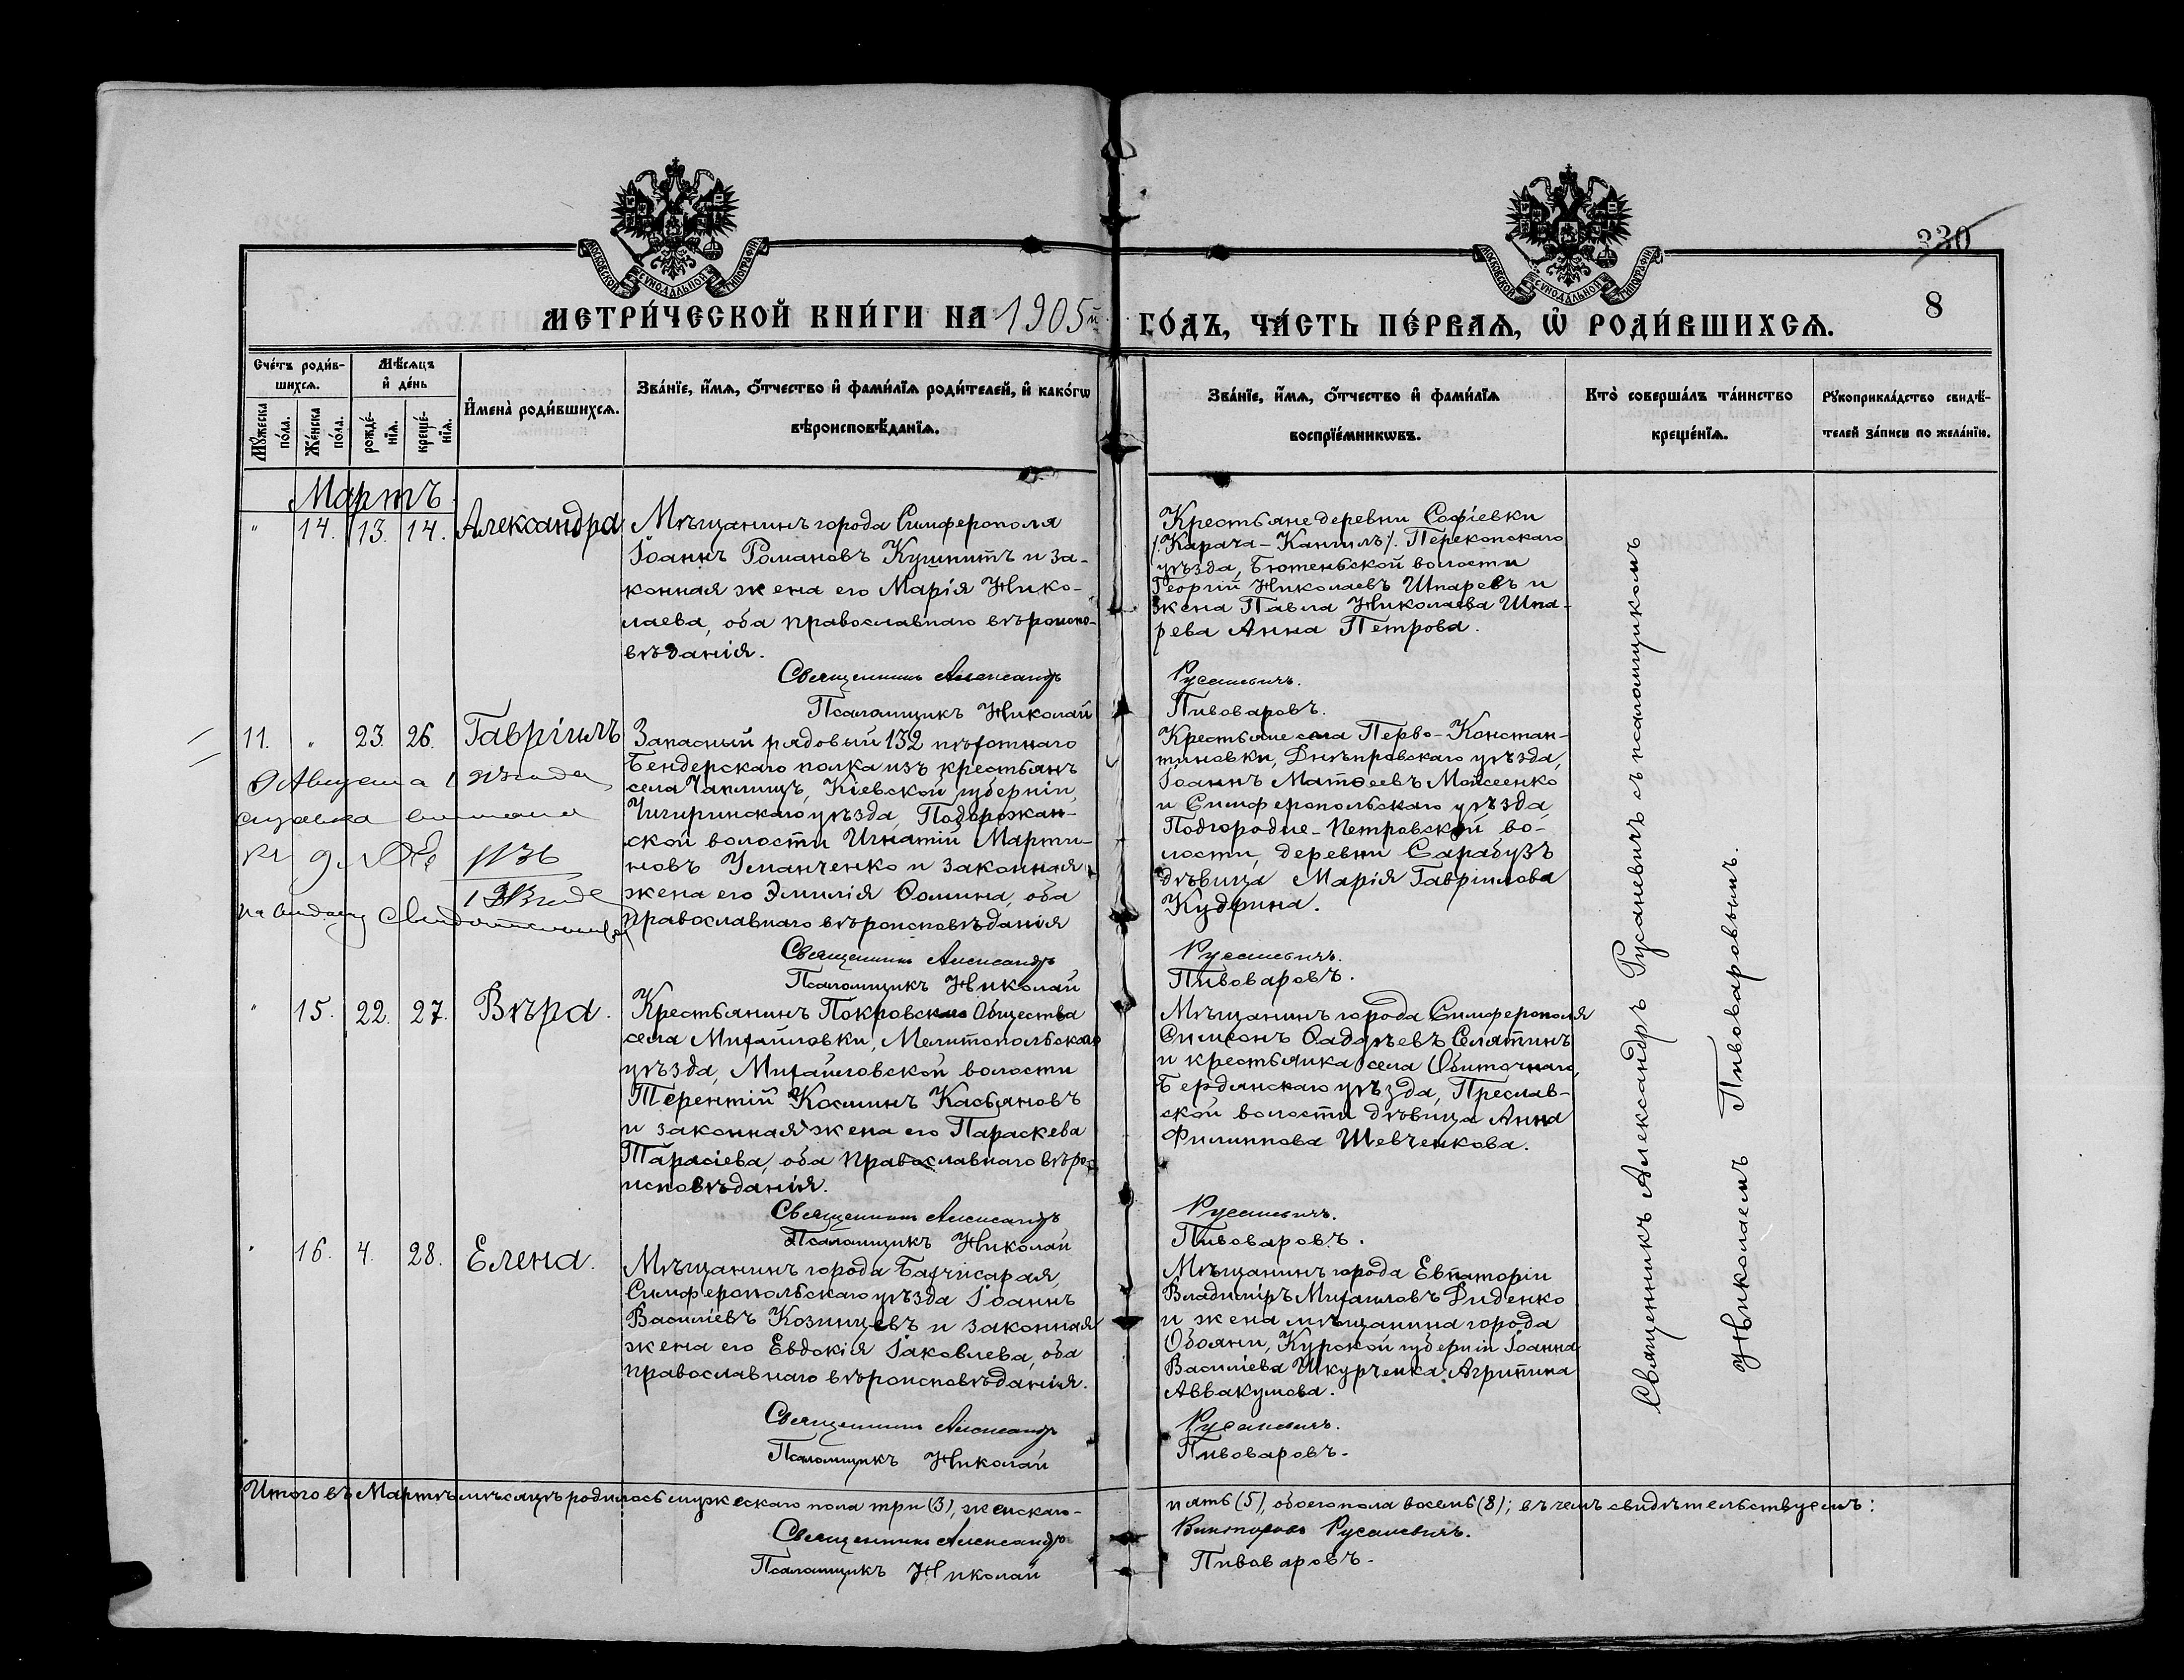 МОСКОВСКОЙ СѴНОДАЛЬНОЙ ТИПОГРАФІИ
МОСКОВСКОЙ СѴНОДАЛЬНОЙ ТИПОГРАФІИ
330
8
МЕТРИ́ЧЕСКОЙ КНИ́ГИ НА 1905й
ГО́ДЪ, ЧА́СТЬ ПЕ́РВАѦ, Ѡ҆ РОДИ́ВШИХСѦ.
Сче́тъ роди́в-
шихсѧ.
Мꙋ́жеска по́ла.
Же́нска по́ла.
Мѣ́сѧцъ и҆ де́нь
рожде́-нїѧ.
креще́-нїѧ.
И҆мена̀ роди́вшихсѧ.
Зва́нїе, и҆́мѧ, ѻ҆́тчество и҆ фами́лїѧ роди́телей, и҆ како́гѡ
вѣроисповѣ́данїѧ.
Зва́нїе, и҆́мѧ, ѻ҆́тчество и҆ фами́лїѧ
воспрїе́мникѡвъ.
Кто̀ соверша́лъ та́инство
креще́нїѧ.
Рꙋкоприкла́дство свидѣ́-
телей за́писи по жела́нїю.
Мартъ
" 14. 13. 14. Александра
Мѣщанинъ города Симферополя
Іоаннъ Романовъ Кушнитъ и за-
конная жена его Марія Нико-
лаева, оба православнаго вѣроиспо-
вѣданія.
Священникъ Александръ
Псаломщикъ Николай
Крестьяне деревни Софіевки
/:Карача-Кангилъ/: Перекопскаго
уѣзда, Бютеньской волости
Георгій Николаевъ Шпаревъ и
жена Павла Николаева Шпа-
рева Анна Петрова.
Русаневичъ.
Пивоваровъ.
11. " 23. 26. Гавріилъ
Запасный рядовый 132 пѣхотнаго
Бендерскаго полка изъ крестьянъ
села Чаплищъ, Кіевской губерніи,
Чигиринскаго уѣзда, Подорожан-
ской волости Игнатій Марти-
новъ Уманченко и законная
жена его Эмилія Ѳомина, оба
православнаго вѣроисповѣданія
Священникъ Александръ
Псаломщикъ Николай
Крестьяне села Перво-Констан-
тиновки, Днѣпровскаго уѣзда,
Іоаннъ Матѳеевъ Моисеенко
и Симферопольскаго уѣзда,
Подгородне-Петровской во-
лости, деревни Сарабузъ
дѣвица Марія Гавріилова
Кудрина.
Русаневичъ.
Пивоваровъ.
" 15. 22. 27. Вѣра.
Крестьянинъ Покровскаго Общества
села Михайловки, Мелитопольскаго
уѣзда, Михайловской волости
Терентій Косминъ Касьяновъ
и законная жена его Параскева
Тарасіева, оба православнаго вѣро-
исповѣданія.
Священникъ Александръ
Псаломщикъ Николай
Мѣщанинъ города Симферополя
Симеонъ Ѳадѣевъ Селятинъ
и крестьянка села Обиточнаго,
Бердянскаго уѣзда, Преслав-
ской волости дѣвица Анна
Филиппова Шевченкова.
Русаневичъ.
Пивоваровъ.
" 16. 4. 28. Елена.
Мѣщанинъ города Бахчисарая,
Симферопольскаго уѣзда Іоаннъ
Василіевъ Козинцевъ и законная
жена его Евдокія Іаковлева, оба
православнаго вѣроисповѣданія.
Священникъ Александръ
Псаломщикъ Николай
Мѣщанинъ города Евпаторіи
Владиміръ Михаиловъ Диденко
и жена мѣщанина города
Обояни, Курской губерніи Іоанна
Василіева Шкурченка Агрипина
Аввакумова.
Русаневичъ.
Пивоваровъ.
Священникъ Александръ Русаневичъ съ псаломщикомъ
Николаемъ Пивоваровымъ.
Итого въ Мартѣ мѣсяцѣ родилось мужескаго пола три (3), женскаго-
пять (5), обоего пола восемь (8); въ чемъ свидѣтельствуемъ:
Священникъ Александръ
Викторовъ Русаневичъ.
Псаломщикъ Николай
Пивоваровъ.